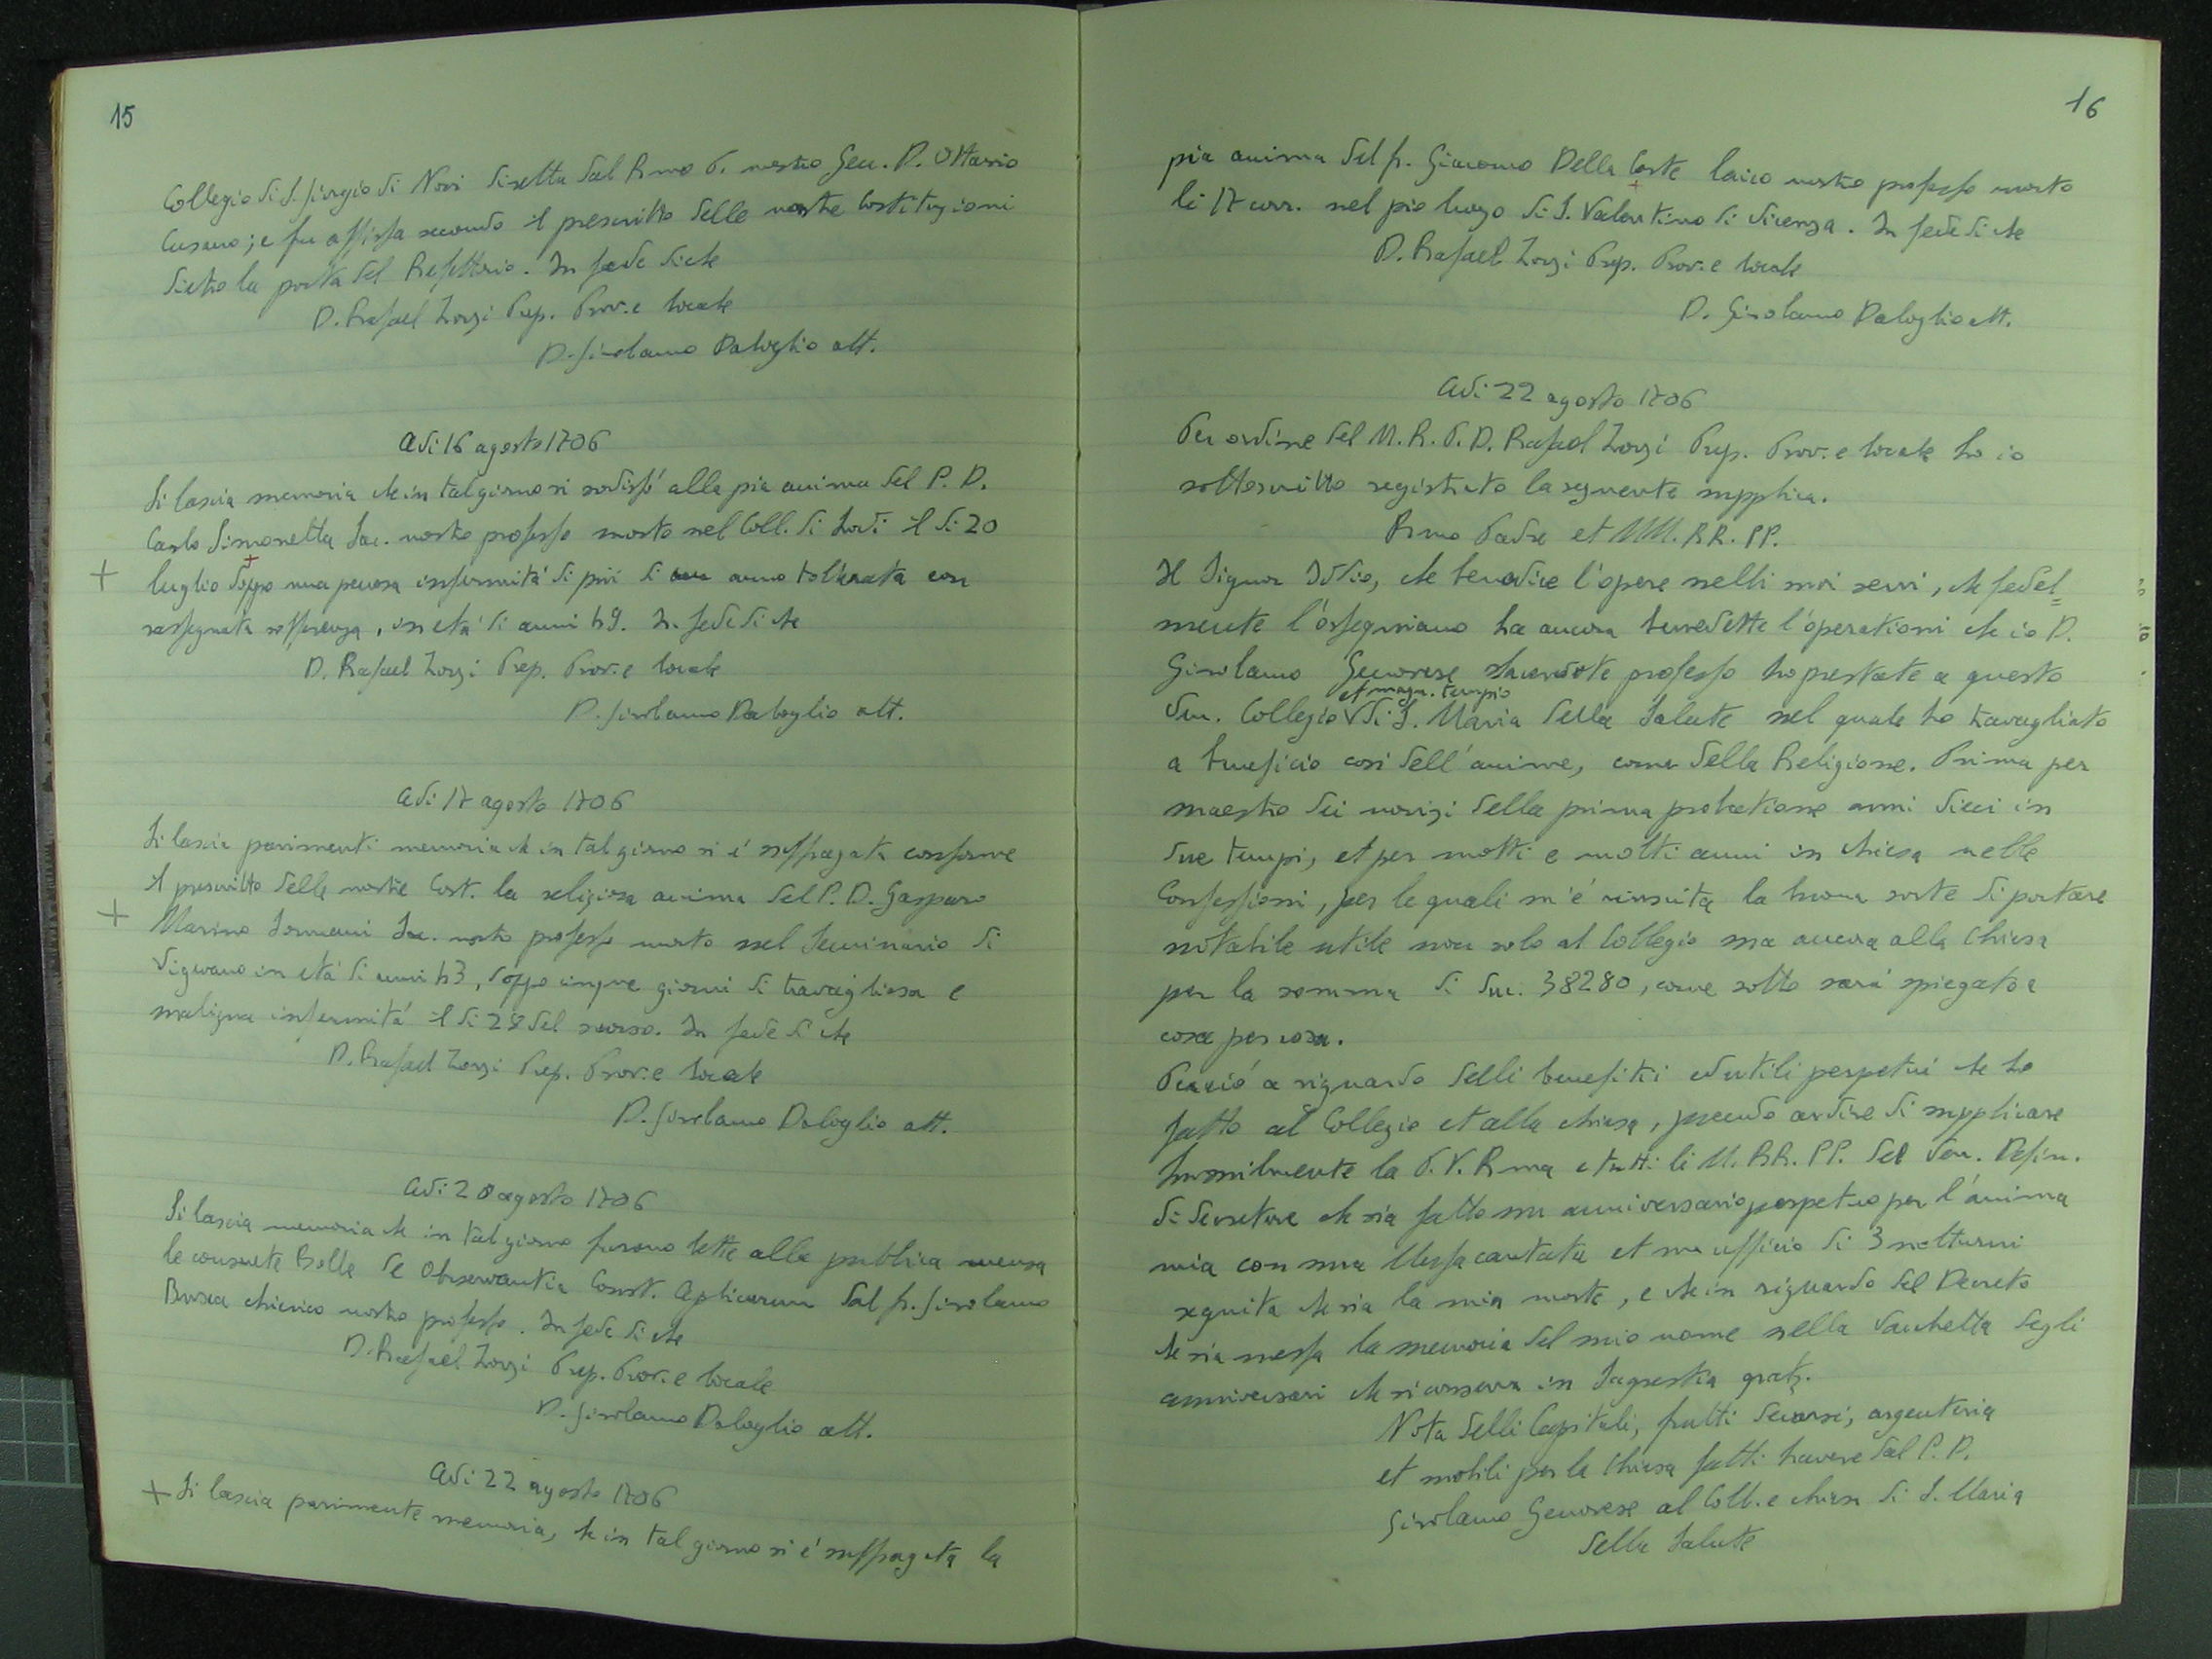 15
Collegio di S. Giorgio di Novi diretta dal R.mo P. nostro Gen. D. Ottavio
Cusano; e fu affissa secondo il prescritto delle nostre Costituzioni
dietro la porta del Refettorio. In fede di che
D. Rafael Zorzi Prep. Prov. e locale
D. Girolamo Daboglio att.
Adi 16 agosto 1706
Si lascia memoria che in tal giorno si sodisfò alla pia anima del P. D.
Carlo Simonetta Sac. nostro professo morto nel Coll. di Lodi il dì 20
luglio doppo una penosa infermità di più di anno tollerata con
rassegnata sofferenza, in età di anni 49. In fede di che
D. Rafael Zorzi Prep. Prov. e locale
D. Girolamo Daboglio att.
Adi 17 agosto 1706
Si lascia parimenti memoria che in tal giorno si è suffragata conforme
il prescritto delle nostre Cost. la religiosa anima del P. D. Gasparo
Marino Sormani Sac. nostro professo morto nel Seminario di
Vigevano in età di anni 43, doppo cinque giorni di travagliosa e
maligna infermità il dì 28 del scorso. In fede di che
D. Rafael Zorzi Prep. Prov. e locale
D. Girolamo Daboglio att.
Adi 20 agosto 1706
Si lascia memoria che in tal giorno furono lette alla publica mensa
le consuete Bolle de Observantia Const. Aplicarum dal fr. Girolamo
Busca chierico nostro professo. In fede di che
D. Rafael Zorzi Prep. Prov. e locale
D. Girolamo Daboglio att.
Adi 22 agosto 1706
+ Si lascia parimente memoria, che in tal giorno si è suffragata la
16
pia anima del fr. Giacomo Della Corte laico nostro professo morto
li 17 corr. nel pio luogo di S. Valentino di Vicenza. In fede di che
D. Rafael Zorzi Prep. Prov. e locale
D. Girolamo Daboglio att.
Adi 22 agosto 1706
Per ordine del M. R. P. D. Rafael Zorzi Prep. Prov. e locale ho io
sottoscritto registrato la seguente supplica.
R.mo Padre et MM. RR. PP.
Il Signor Iddio, che benedice l'opere nelli suoi servi, che fedel=
mente l'ossequiano ha ancora benedette l'operationi che io D.
Girolamo Genovese sacerdote professo ho prestate a questo
Ven. Collegio et magn. tempio di S. Maria della Salute nel quale ho travagliato
a beneficio così dell'anime, come della Religione. Prima per
maestro dei novizi della prima probatione anni dieci in
due tempi, et per molti e molti anni in chiesa nelle
Confessioni, per le quali m'è riuscita la buona sorte di portare
notabile utile non solo al Collegio ma ancora alla Chiesa
per la somma di duc. 38280, come sotto sarà spiegato a
cosa per cosa.
Perciò a riguardo delli benefitii ed utili perpetui che ho
fatto al Collegio et alla chiesa, prendo ardire di supplicare
humilmente la P. V. R.ma e tutti li M. RR. PP. del Ven. Defin.
di decretare che sia fatto un anniversario perpetuo per l'anima
mia con una Messa cantata et un ufficio di 3 notturni
seguita che sia la mia morte, e che in riguardo del Decreto
che sia messa la memoria del mio nome nella vachetta degli
anniversari che si conserva in Sagrestia gratz.
Nota delli Capitali, frutti decorsi, argenteria
et mobili per la Chiesa fatti havere dal P. D.
Girolamo Genovese al Coll. e chiesa di S. Maria
della Salute